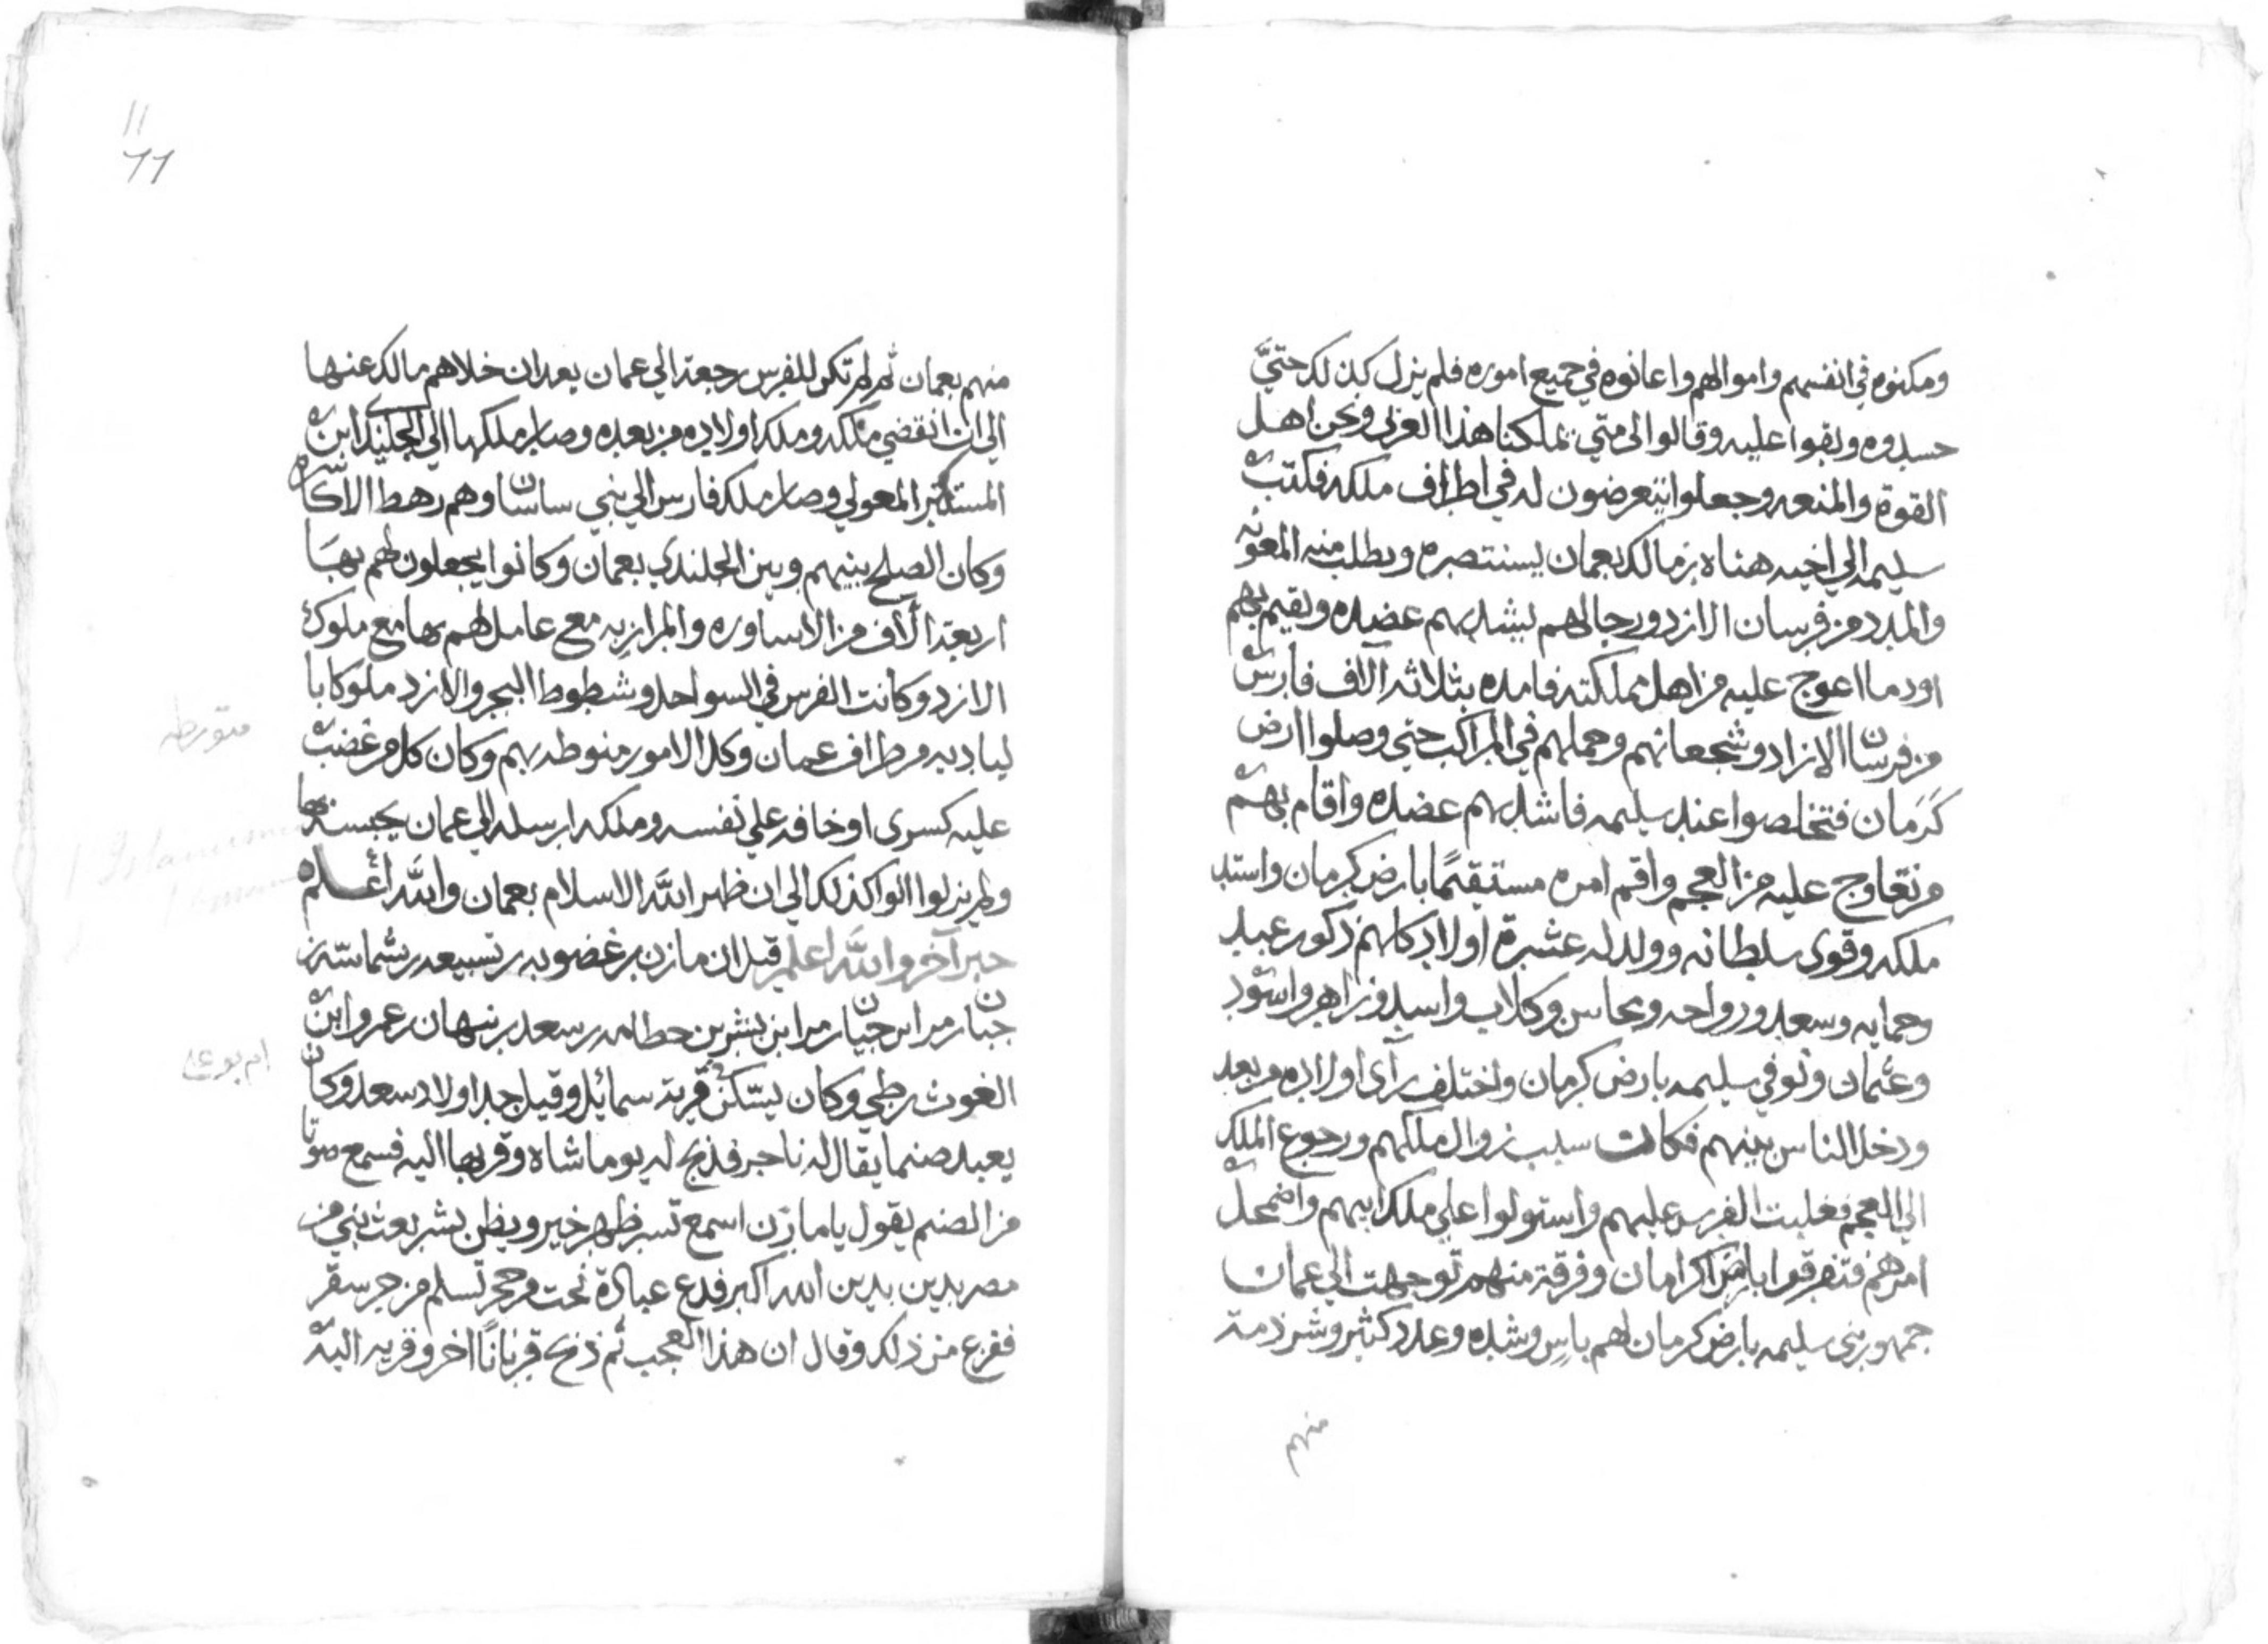 ومكنوه في انفسهم واموالهم واعانوه في جميع اموره فلم يزل كذلك حتيَّ
حسدوه وبغوا عليه وقالوا الى متي يملكنا هذا العربي ونحن اهل
القوة والمنعه وجعلوا يتعرضون له في اطراف ملكه فكتب
سليمه الي اخيه هناه بن مالك بعمان يستنصره ويطلب منه المعونه
والمدد من فرسان الازد ورجالهم ليشد بهم عضده ويقيم بهم
اود ما اعوج عليه من اهل مملكته فامده بثلاثه آلاف فارس
من فرسان الازاد وشجعانهم وحملهم في المراكب حتي وصلوا ارض
كَرمَان فتخلصوا عند سليمه فاشد بهم عضده واقام بهم
من تعاوج عليه من العجم واقم امره مستقيمًا بارض كرمان واستد
ملكه وقوى سلطانه وولد له عشرة اولاد كلهم ذكور عبد
وحمايه وسعد ورواحه ومحاس وكلاب واسد وزاهر واسود
وعثمان وتوفي سليمه بارض كرمان واختلف رآى اولاده من بعد
ودخل الناس بينهم فكانت سبب زوال ملكهم ورجوع الملك
الي العجم فغلبت الفرس عليهم واستولوا علي ملك ابيهم واضمحل
امرهم فتفرقوا بارض كرامان وفرقة منهم توجهت الي عمان
جمهور بني سليمه بارض كرمان لهم باس وشده وعدد كثير وشرذمة
منهم
11
منهم بعمان ثم لم تكن للفرس رجعة الي عمان بعد ان خلاهم مالك عنها
الي ان انقضي ملكه وملك اولاده من بعده وصار ملكها الي الجلندي ابن
المستكبر المعولي وصار ملك فارس الي بني ساسان وهم رهط الاكاسره
وكان الصلح بينهم وبين الجلندي بعمان وكانوا يجعلون لهم بهَا
اربعة الاف من الاساوره والمرازبه مع عامل لهم بها مع ملوك
الازد وكانت الفرس في السواحل وشطوط البحر والازد ملوكا با
لباديه وطراف عمان وكل الامور منوطه بهم وكان كل من غضب
عليه كسرى او خافه علي نفسه وملكه ارسله الي عمان يحبسه بها
ولم يزلوا كذلك الي ان ظهر اللَّه الاسلام بعمان واللَّه أعلم
خبر آخر واللَّه اعلم قيل ان مازن بن غضوبه بن سبيعه بن شماسه بن
حيان بن مر ابن حيان بن مر ابن بشر بن حطامه بن سعد بن نبهان بن عمرو ابن
الغوث بن طي وكان يسكن قرية سمائل وقيل جد اولاد سعد وكان
يعبد صنما يقال له ناجر فذبح له يوما شاه وقربها اليه فسمع صوتا
من الصنم يقول يا مازن اسمع تسر ظهر خير وبطن بشر بعث نبي من
مضر بدين بدين الله اكبر فدع عبادة نحت من حجر تسلم من حر سقر
ففزع من ذلك وقال ان هذا العجب ثم ذبح قربانًا اخر وقربه اليه